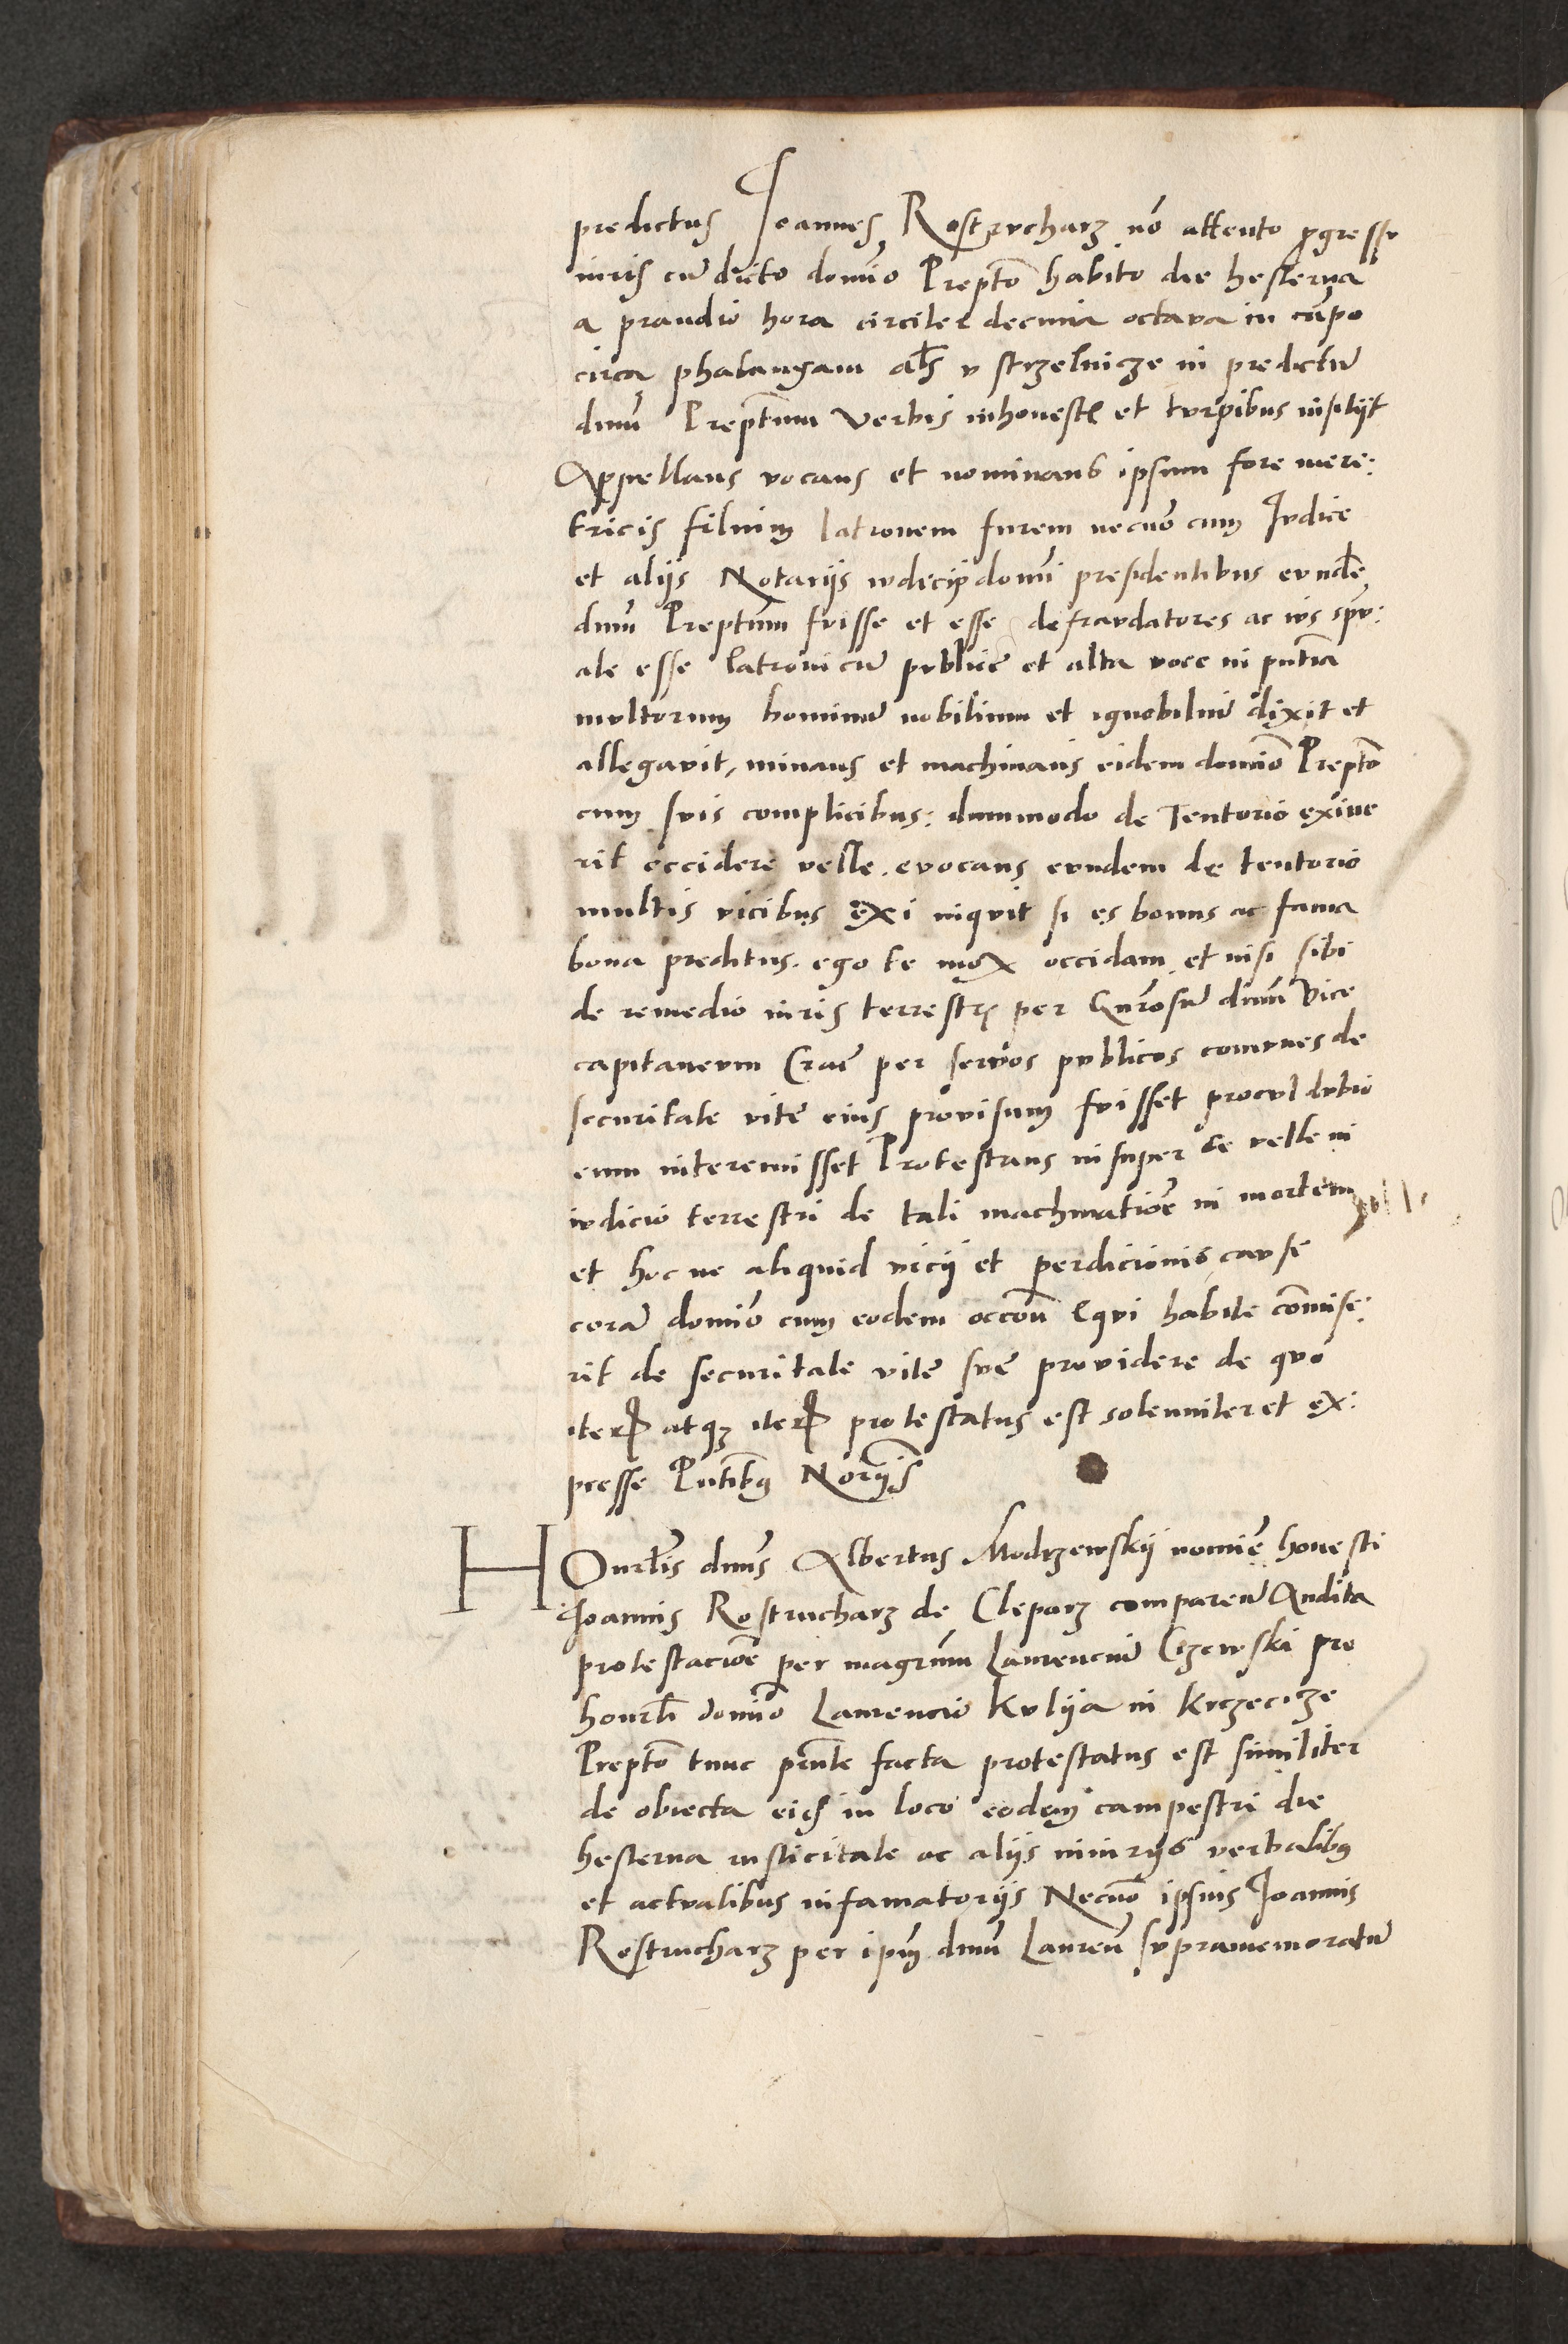 predictus Joannes Rostrvcharz nō attento pgressv
iuris cū dicto domīo Preptō habito die hesterna
a prandio hora circiter decima octava in cāpo
circa phalangam als v strzelnicze in predictū
dnūm Preptūm Verbis inhonest(is) et tvrpibus insilijt
Appellans vocans et nominans ipsum fore mere:
tricis filium latronem furem necnō cum Jvdice
et alijs Notarijs ivdicij domī presidentibus evndē
dnūm Preptūm fvisse et esse defravdatores ac ivs spū:
ale esse latroniciū pvblicē et alta voce in pntīa
mvltorum hominū nobilium et ignobiliū dixit et
allegavit, minans et machinans eidem domīo Preptō
cum svis complicibus: dummodo de Tentorio exive
rit occidere velle. evocans evndem de tentorio
multis vicibus exi inqvit si es bonus ac fama
bona preditus. ego te mox occidam et nisi sibi
de remedio iuris terrestr(is) per Gnrōsū dnūm Vice
capitanevm Crac̄ per servos pvblicos comvnes de
securitate vite eius provisum fvisset procvl dvbio
eum interemisset Protestans insuper se velle in
ivdicio terrestri de tali machinatiōe in mortem
et hoc ne aliquid vicij et perdicionis cavse
corā domīo cum eodem occōn Eqvi habite cōmise:
rit de securitate vite sve providere de qvo
iter(um) atqz iter(um) protestatus est solenniter et ex:
presse Pntibg Norijs
HOnrblis dnūs Albertus Modrzewskij nomīe honesti
Joannis Rostrucharz de Cleparz comparenū Audita
protestaciōe per magrūm Laurenciū Czewski pro
honrbli domīo Laurencio Kvlija in Krzecicze
Preptō tunc pnte facta protestatus est similiter
de obiecta eis in loco eodem campestri die
hesterna rusticitate ac alijs iniurijs verbalibg
et actvalibus infamatorijs Necnō ipsius Joannis
Rostrucharz per ipm dnūm Laurenū svpramemoratū